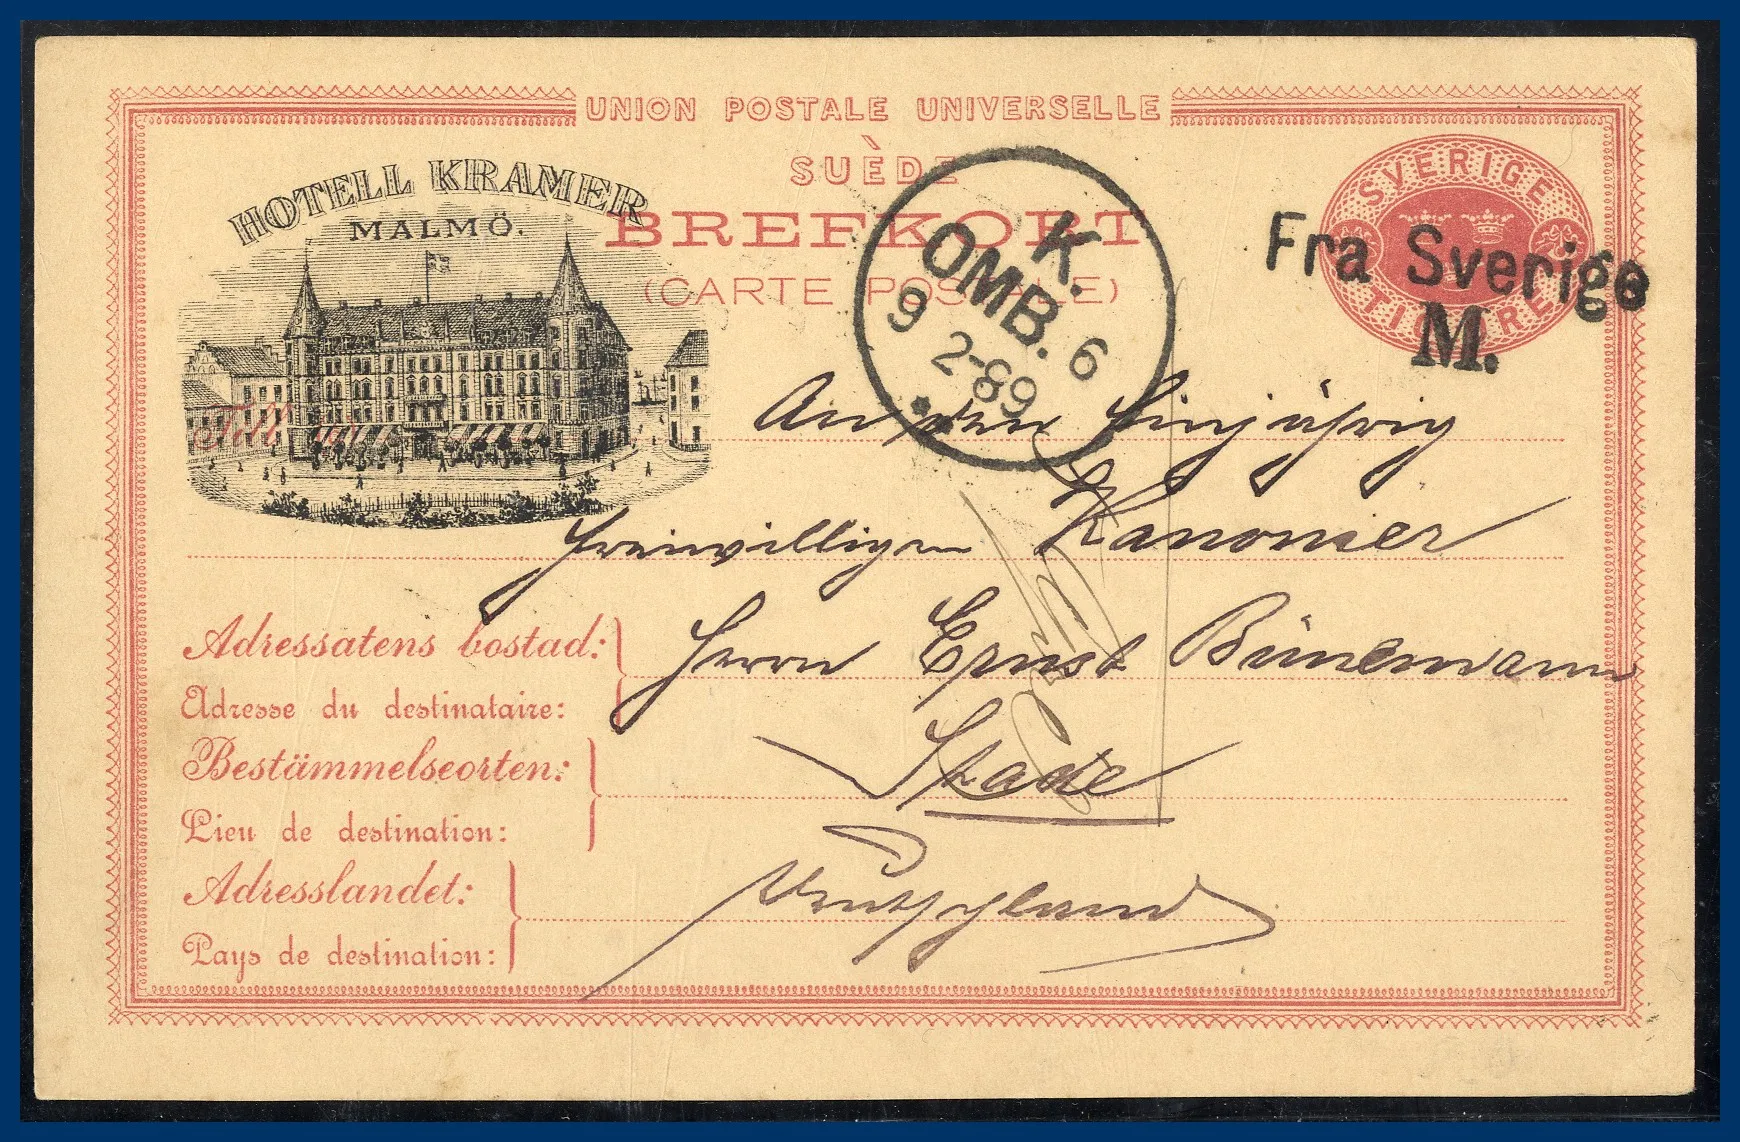 UNION POSTALE UNIVERSELLE
SUÈDE
BREFKORT
(CARTE POSTALE)
HOTELL KRAMER
MALMÖ.
SVERIGE
TIO ÖRE
Fra Sverige
M.
K.
OMB. 6
9 2-89
Till
An den Einjährig
Freiwilligen Kanonier
Herrn Ernst Bünemann
Stade
Deutschland
Adressatens bostad:
Adresse du destinataire:
Bestämmelseorten:
Lieu de destination:
Adresslandet:
Pays de destination: